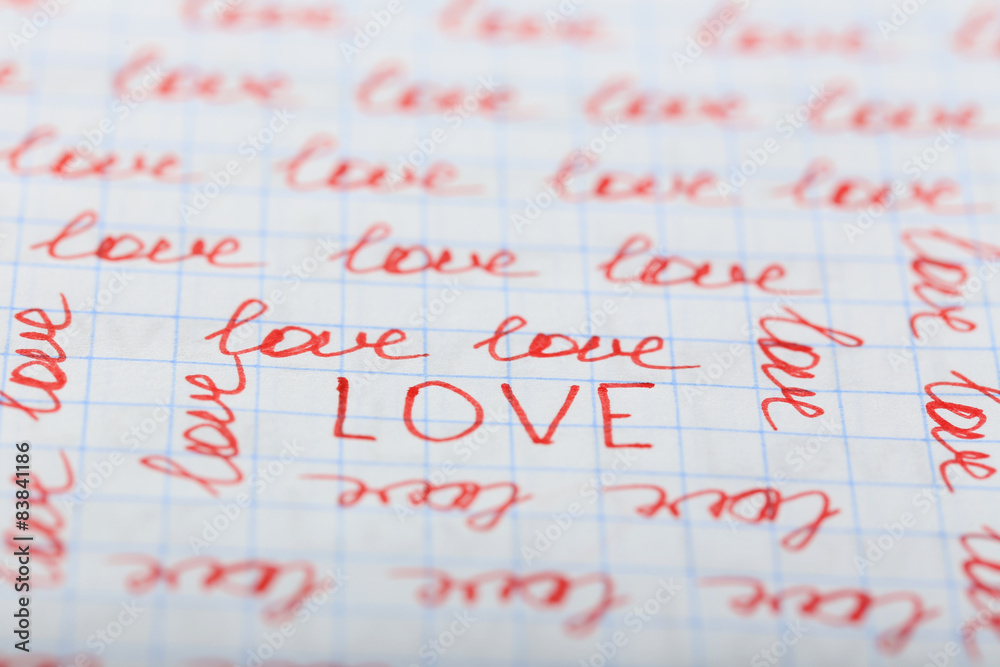 love love love
love love love love
love love love love
love love love
love love love love
love love LOVE love love
love love love
love love love love
love love love love
Adobe Stock | #83841186